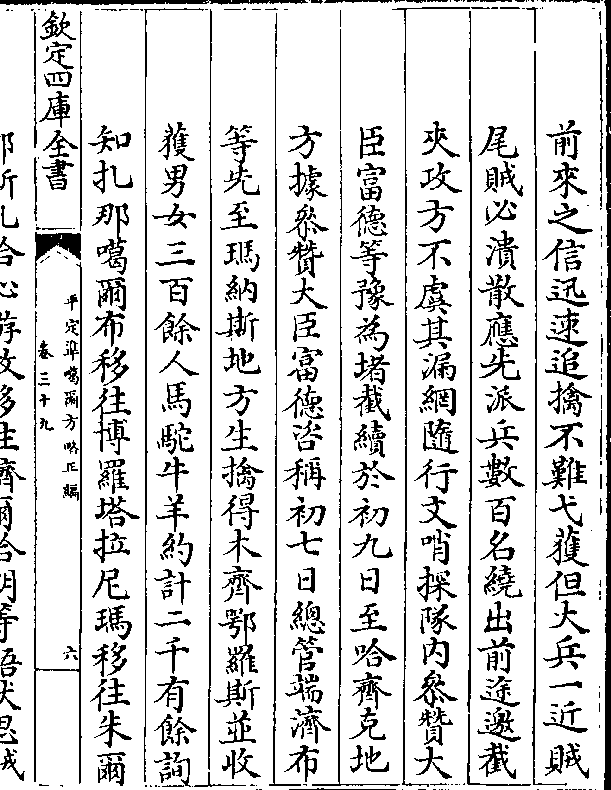 前來之信迅速追擒不難弋獲但大兵一近賊
尾賊必潰散應先派兵數百名繞出前途邀截
夾攻方不虞其漏網隨行文哨探隊內叅贊大
臣富德等豫為堵截續於初九日至哈齊克地
方據叅贊大臣富德咨稱初七日總管端濟布
等先至瑪納斯地方生擒得木齊鄂羅斯並收
獲男女三百餘人馬駝牛羊約計二千有餘詢
知扎那噶爾布移往博羅塔拉尼瑪移往朱爾
欽定四庫全書
平定準噶爾方略正編
卷三十九
六